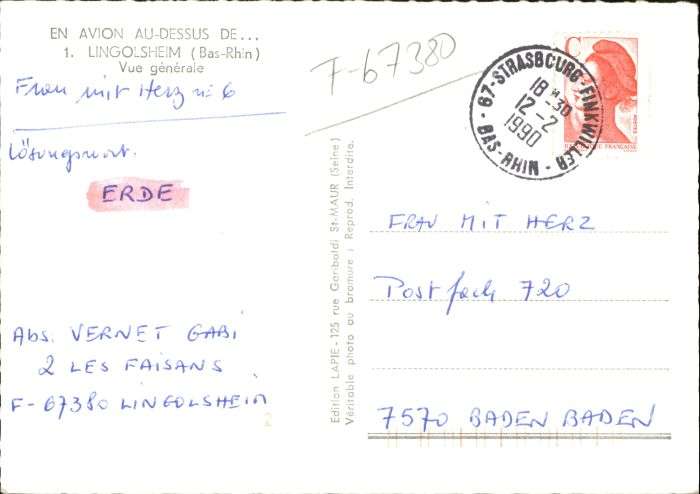 EN AVION AU-DESSUS DE...
1. LINGOLSHEIM (Bas-Rhin)
Vue générale
Frau mit Herz nº 6
Lösungswort.
ERDE
Abs. VERNET GABI
2 LES FAISANS
F-67380 LINGOLSHEIM
Edition LAPIE - 125 rue Garibaldi St-MAUR (Seine)
Véritable photo au bromure ; Reprod. Interdite.
F-67380
67-STRASBOURG-FINKWILLER
18H-30
12-2
1990
BAS-RHIN
C
POSTES
REPUBLIQUE FRANÇAISE
FRAU MIT HERZ
Postfach 720
7570 BADEN BADEN